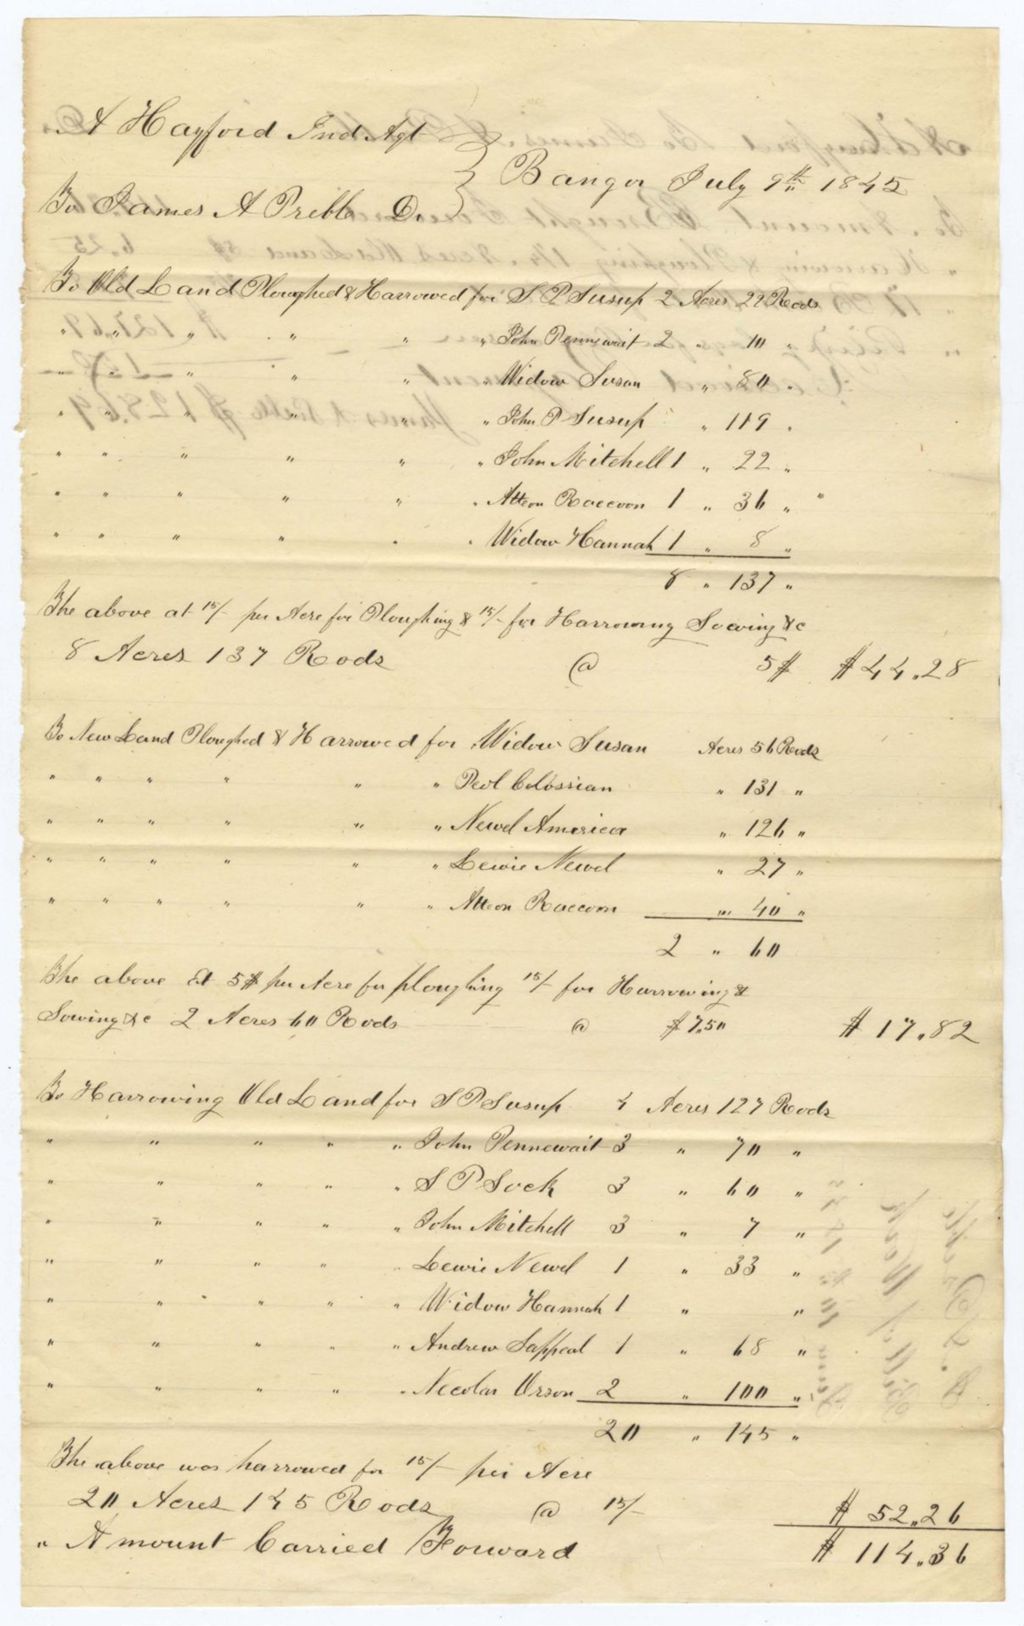 A Hayford Ind Agt
Bangor July 9th 1845
To James A Preble Dr
To Old Land Ploughed & Harrowed for S. P Susup 2 Acres 22 Rods
" " " John Pennewait 2 " 10 "
" " " " " Widow Susan " 80 "
" John P Susup " 119 "
" " " " " " John Mitchell 1 " 22 "
" " " " " " Atteon Raccoon 1 " 36 " "
" " " " " " Widow Hannah 1 " 8 "
8 " 137 "
The above at 15/- per Acre for Ploughing & 15/- for Harrowing Sowing &c
8 Acres 137 Rods @ 5$ $44.28
To New Land Ploughed & Harrowed for Widow Susan Acres 56 Rods
" " " " " " Peol Colossian " 131 "
" " " " " " Newel America " 126 "
" " " " " " Lewie Newel " 27 "
" " " " " " Atteon Raccoon " 40 "
2 " 60
The above at 5$ per Acre for ploughing 15/- for Harrowing &
Sowing &c 2 Acres 60 Rods @ $7.50 $17.82
To Harrowing Old Land for S P Susup 4 Acres 127 Rods
" " " " " John Pennewait 3 " 70 "
" " " " " S P Sock 3 " 60 "
" " " " " John Mitchell 3 " 7 "
" " " " " Lewie Newel 1 " 33 "
" " " " " Widow Hannah 1 " "
" " " " " Andrew Sappeal 1 " 68 "
" " " " " Necolar Orson 2 " 100 "
20 " 145 "
The above was harrowed for 15/- per Acre
20 Acres 145 Rods @ 15/- $52.26
" Amount Carried Forward $114.36